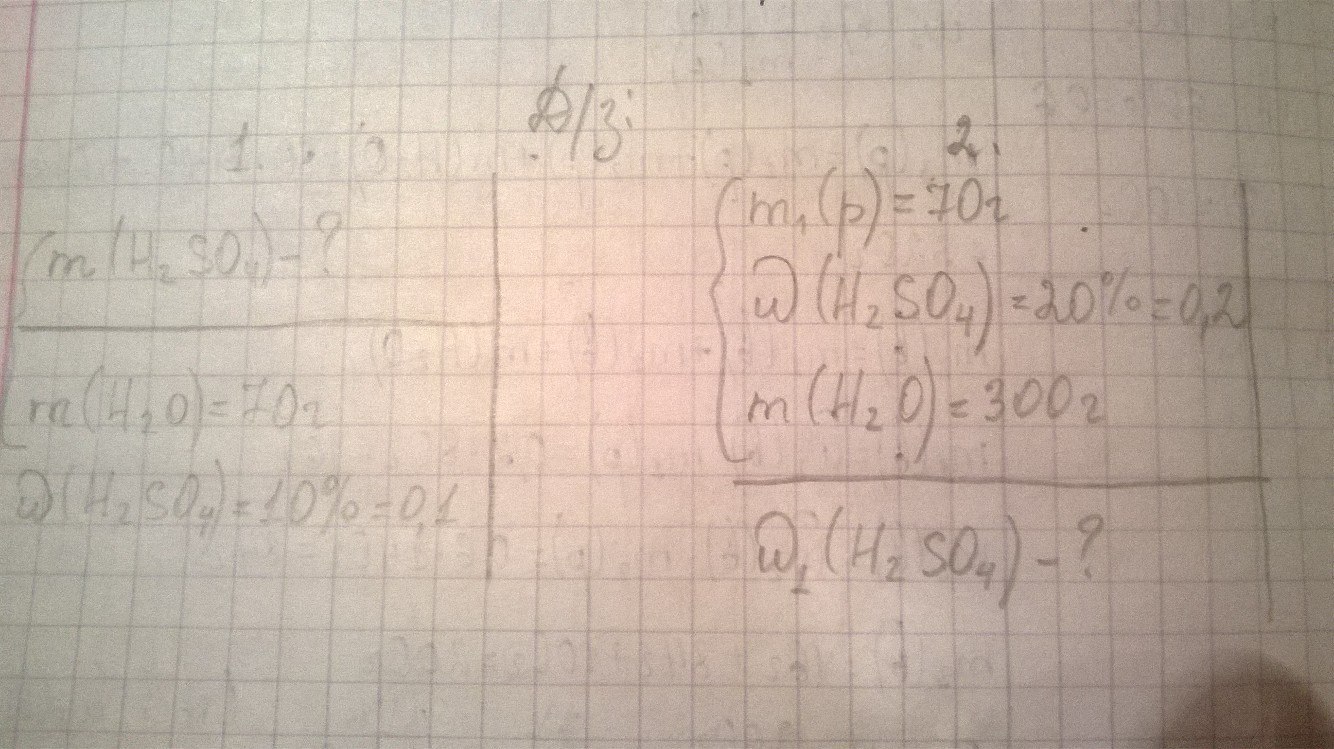 Д/з:
1.
m(H₂SO₄)-?
m(H₂O)=70г
ω(H₂SO₄)=10%=0,1
2.
m₁(р)=70г
ω(H₂SO₄)=20%=0,2
m(H₂O)=300г
ω₁(H₂SO₄)-?